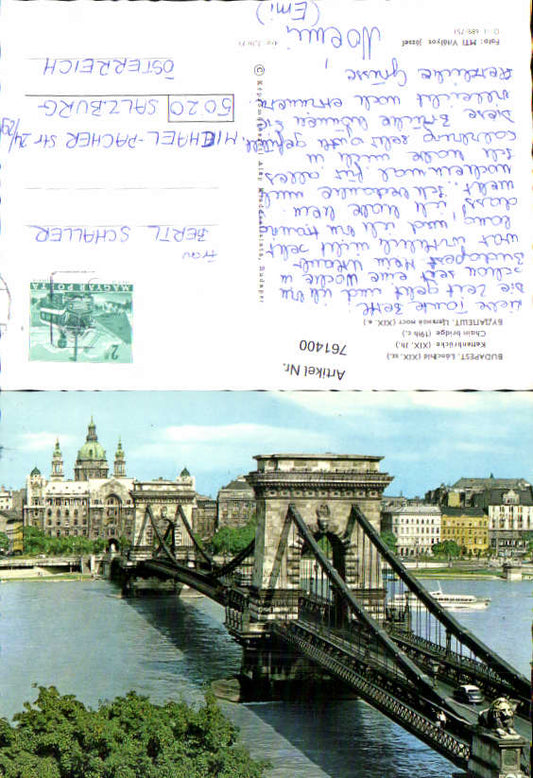 Artikel Nr.
761400
BUDAPEST. Lánchíd (XIX. sz.)
Kettenbrücke (XIX. Jh.)
Chain bridge (19th c.)
БУДАПЕШТ. Цепной мост (XIX в.)
Liebe Tante Berti.
Die Zeit geht und ich bin
schon seit eine Woche in
Budapest. Mein Urlaub
war wirklich nicht sehr
lang, und ich bin traurig
dass ich habe kein
welt. Ich bedanke mich
nocheinmal für alles
Ich habe mich in
Salzburg sehr gut gefühlt.
Diese Brücke können Sie
vielleicht noch erinnern.
Herzliche Grüsse,
Noemi
(Emi)
Foto: MTI Vitályos József
MAGYAR POSTA
2 Ft
Frau
BERTL SCHALLER
MICHAEL-PACHER Str 24/
5020 SALZBURG
ÖSTERREICH